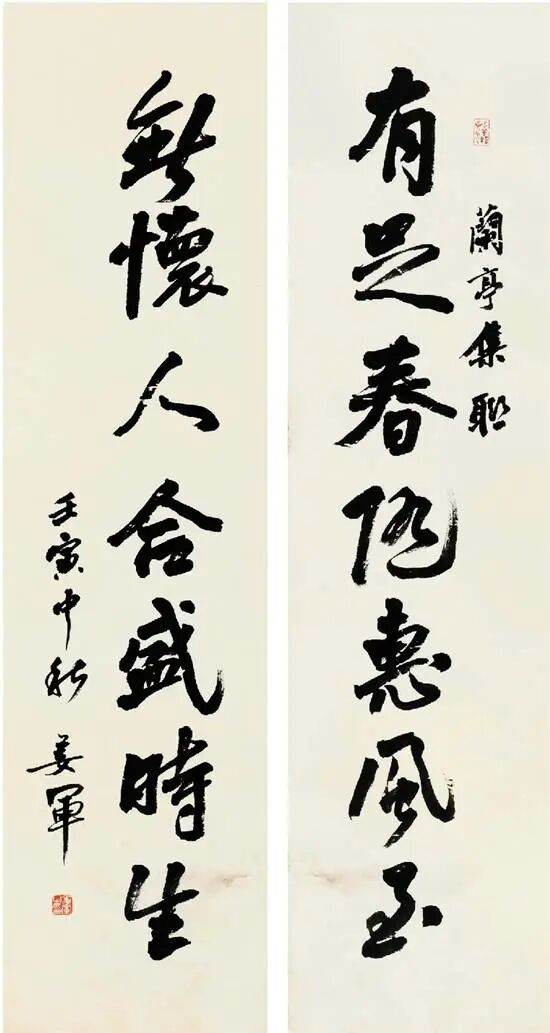 蘭亭集聯
有足春隨惠風至
無懷人合盛時生
壬寅中秋 姜軍